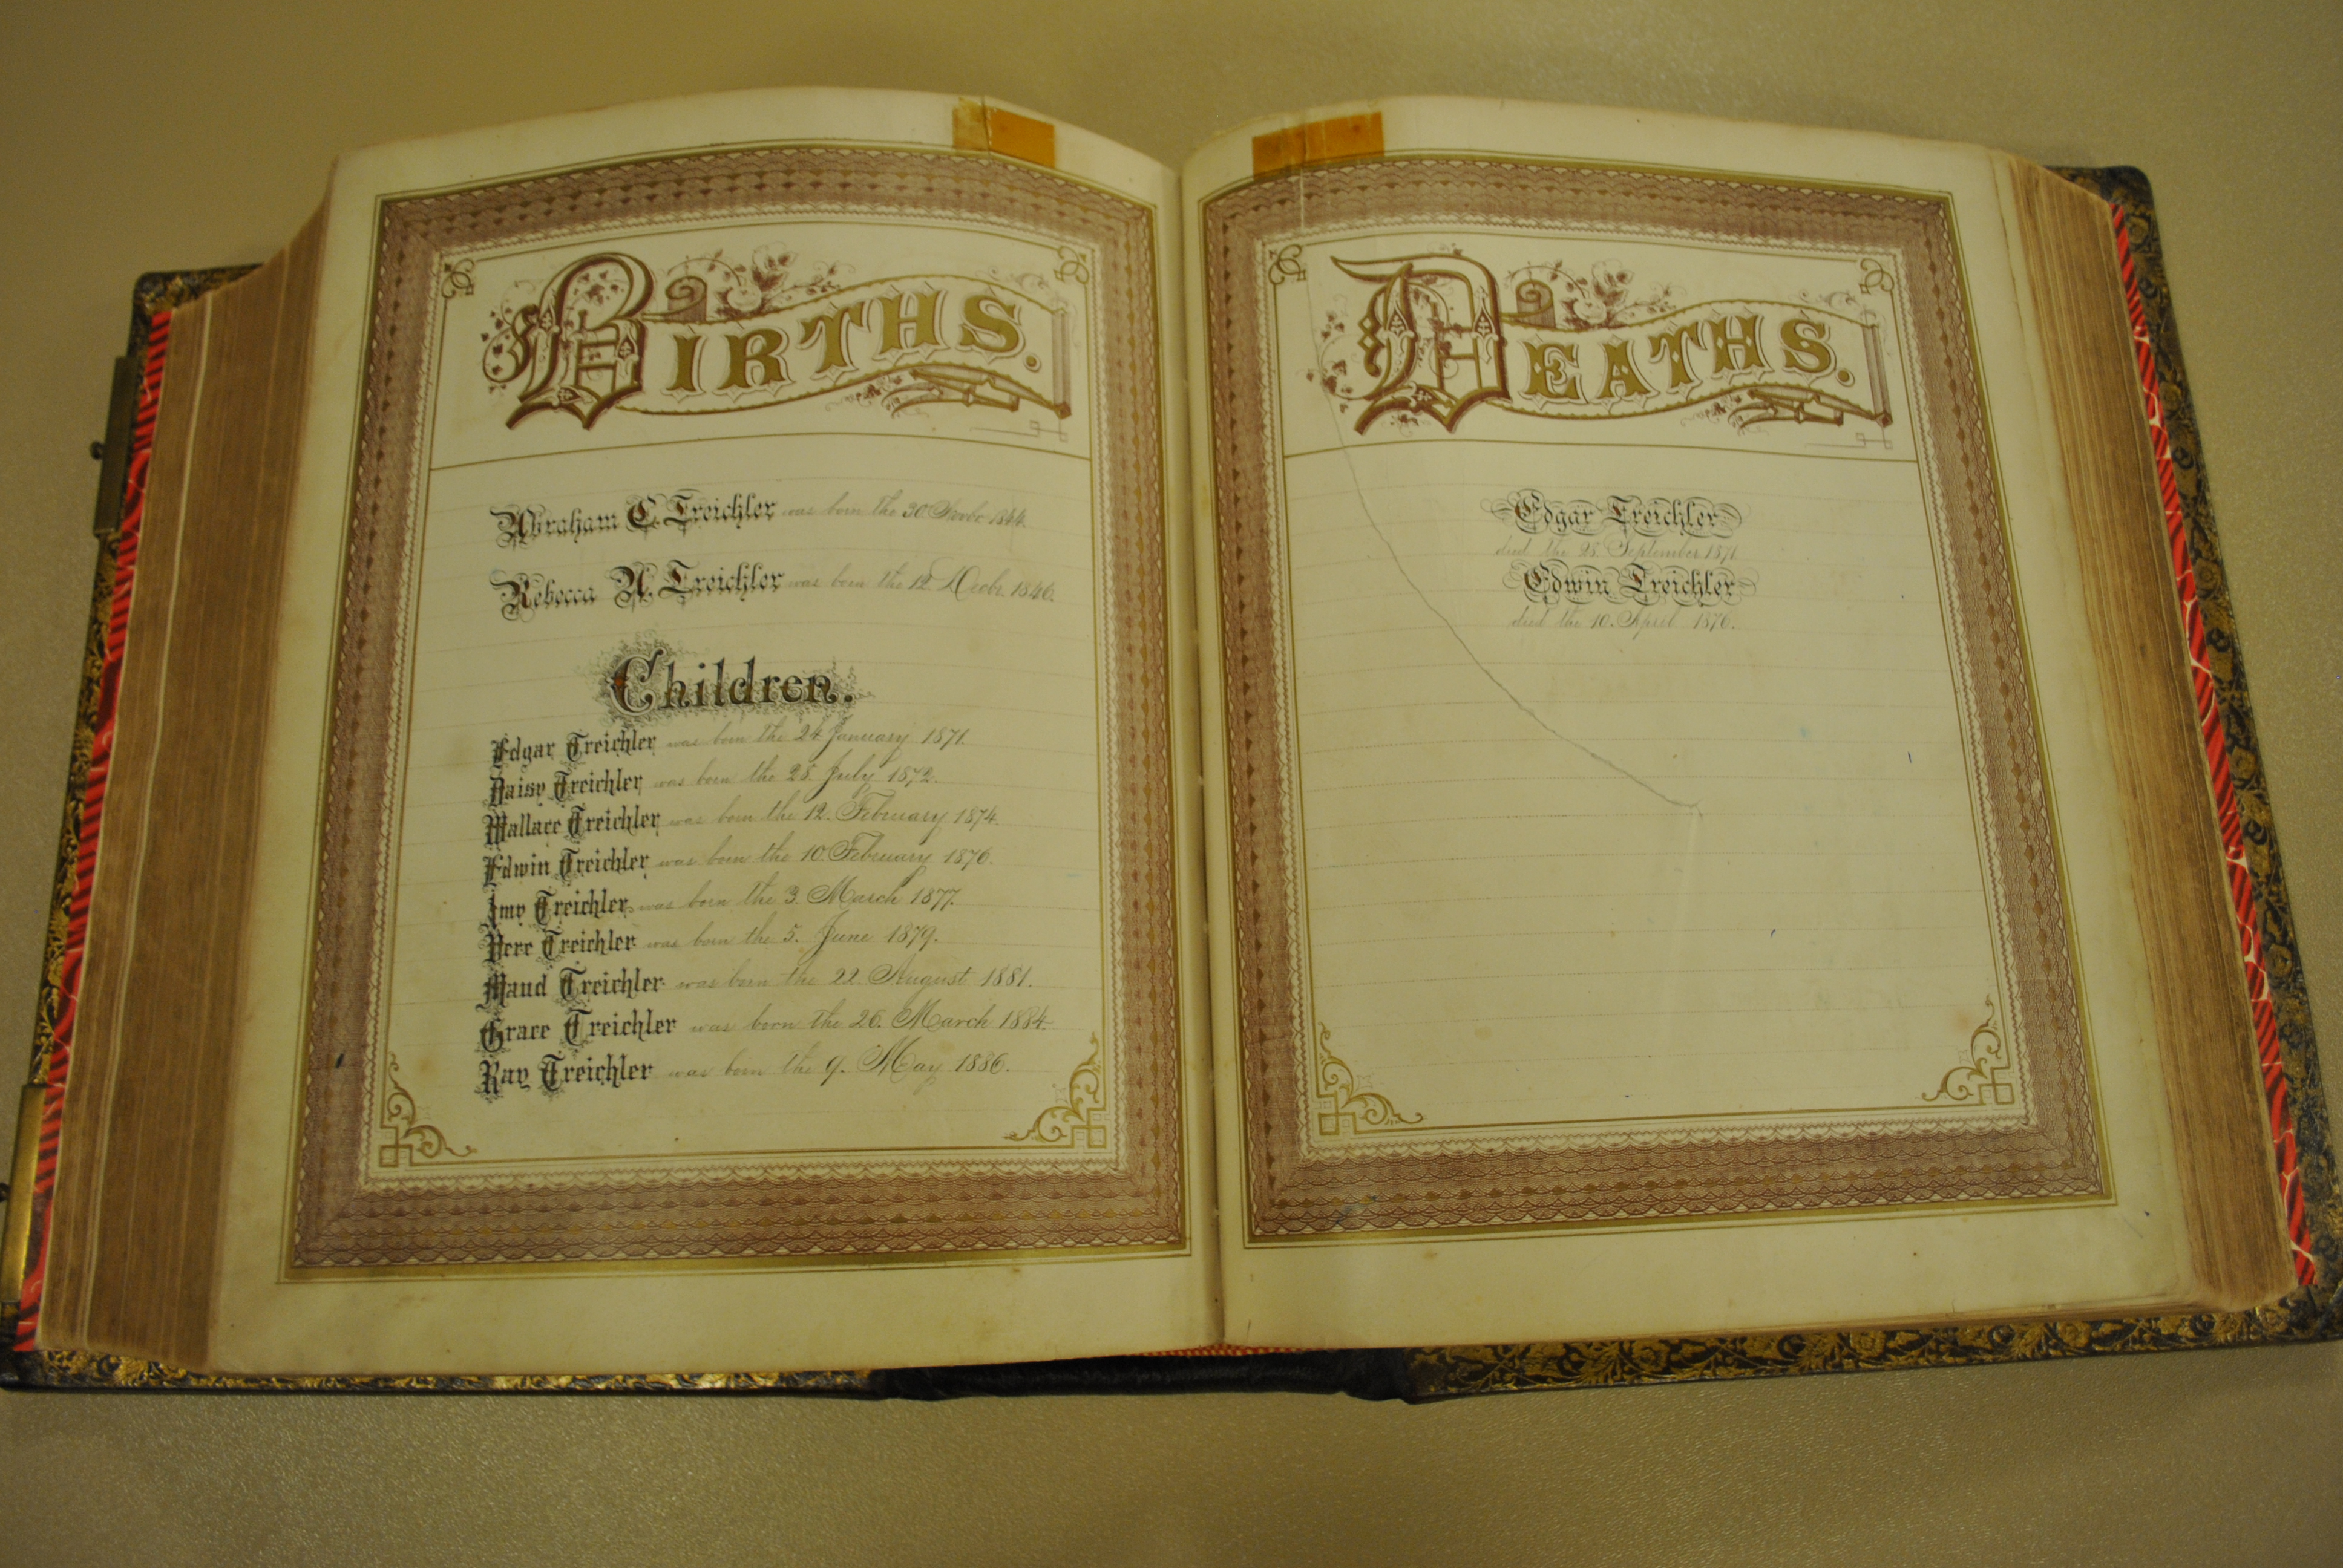 BIRTHS.
Abraham C. Treichler was born the 30 Novbr 1844.
Rebecca N. Treichler was born the 12 Decbr. 1846.
Children.
Edgar Treichler was born the 24 January 1871.
Daisy Treichler was born the 28. July 1872.
Wallace Treichler was born the 12. February 1874
Edwin Treichler was born the 10 February 1876.
Treichler was born the 3. March 1877.
Vere Treichler was born the 5. June 1879.
Maud Treichler was born the 22. August 1881.
Grace Treichler was born the 26. March 1884.
Ray Treichler was born the 9. May 1886.
DEATHS.
Edgar Treichler
died the 28. September 1871
Edwin Treichler
died the 10. April 1876.